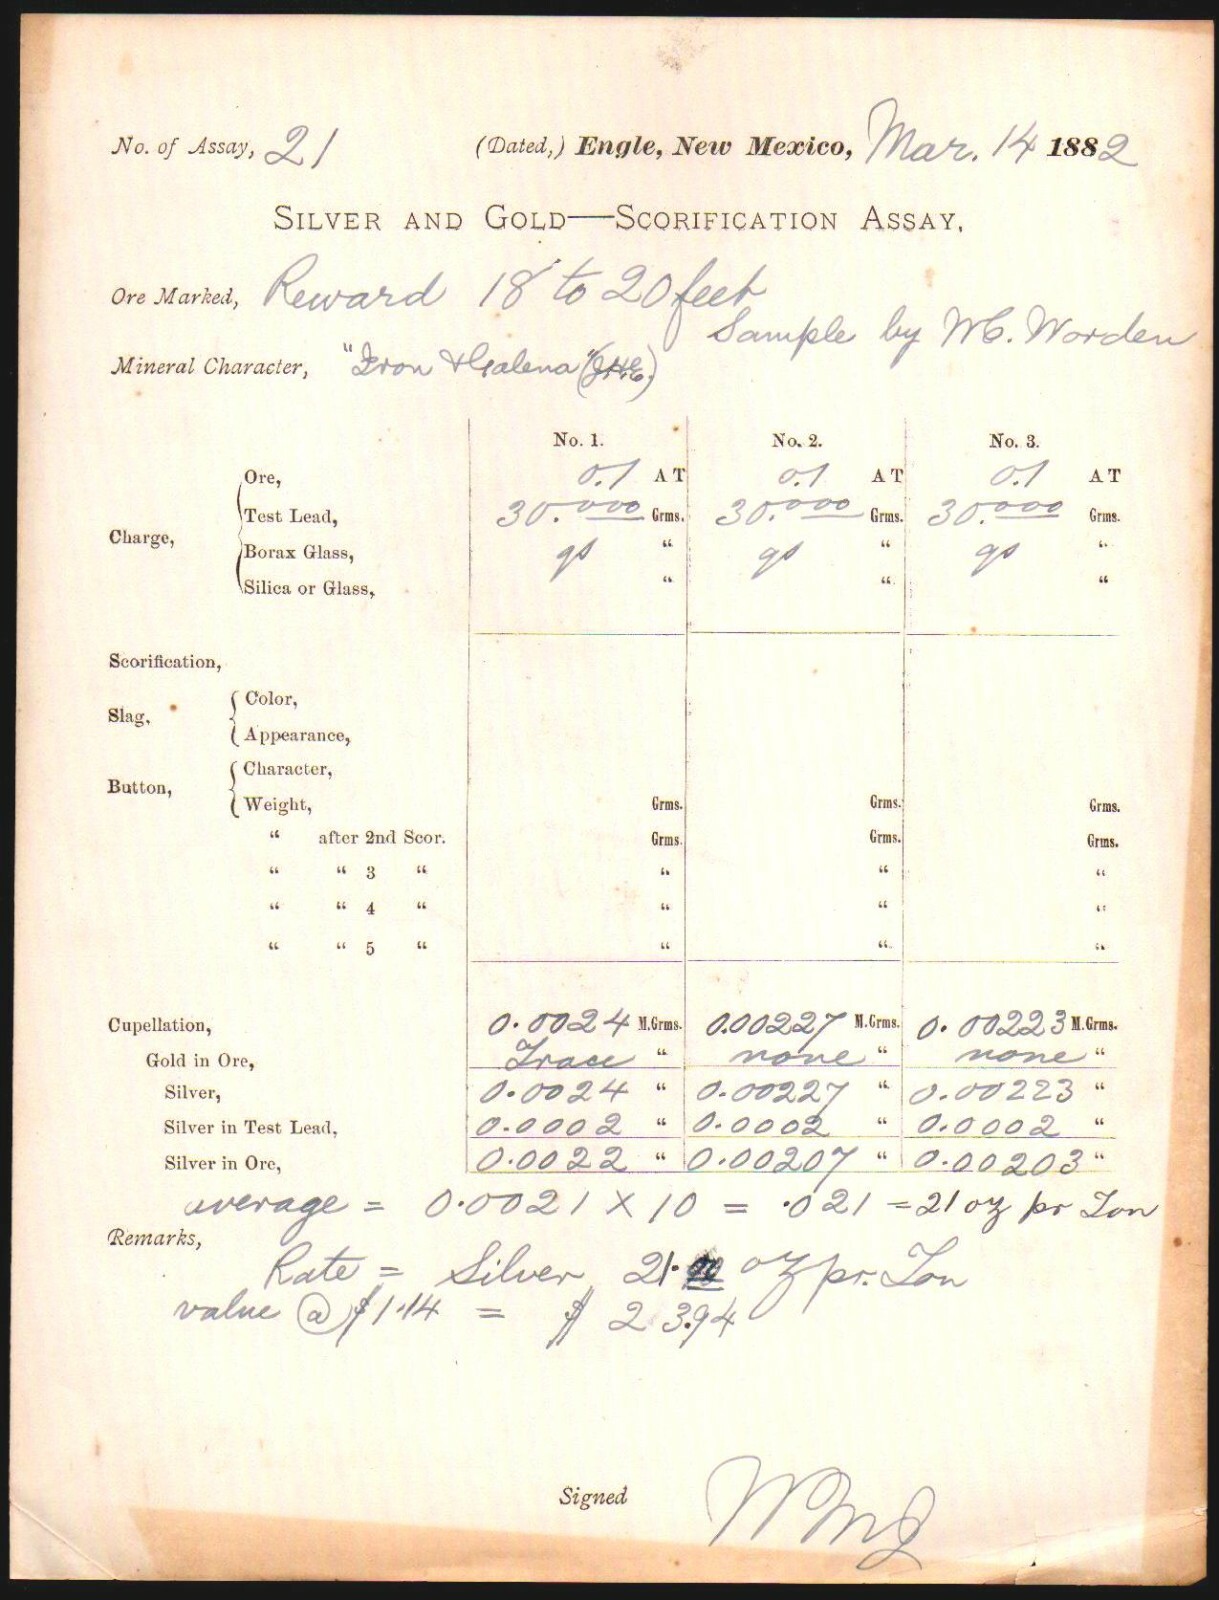 No. of Assay, 21 (Dated,) Engle, New Mexico, Mar. 14 1882
SILVER AND GOLD—SCORIFICATION ASSAY.
Ore Marked, Reward 18 to 20 feet
Sample by W.C. Worden
Mineral Character, "Iron & Galena" (J.H.E.)
No. 1. No. 2. No. 3.
Ore, 0.1 A T 0.1 A T 0.1 A T
Test Lead, 30.000 Grms. 30.000 Grms. 30.000 Grms.
Charge,
Borax Glass, gs “ gs “ gs “
Silica or Glass, “ “ “
Scorification,
Color,
Slag,
Appearance,
Character,
Button,
Weight, Grms. Grms. Grms.
“ after 2nd Scor. Grms. Grms. Grms.
“ “ 3 “ “ “ “
“ “ 4 “ “ “ “
“ “ 5 “ “ “ “
Cupellation, 0.0024 M.Grms. 0.00227 M.Grms. 0.00223 M.Grms.
Gold in Ore, Trace “ none “ none “
Silver, 0.0024 “ 0.00227 “ 0.00223 “
Silver in Test Lead, 0.0002 “ 0.0002 “ 0.0002 “
Silver in Ore, 0.0022 “ 0.00207 “ 0.00203 “
average = 0.0021 X 10 = .021 = 21 oz pr Ton
Remarks,
Rate = Silver 21. oz pr. Ton
value @ $1.14 = $ 23.94
Signed